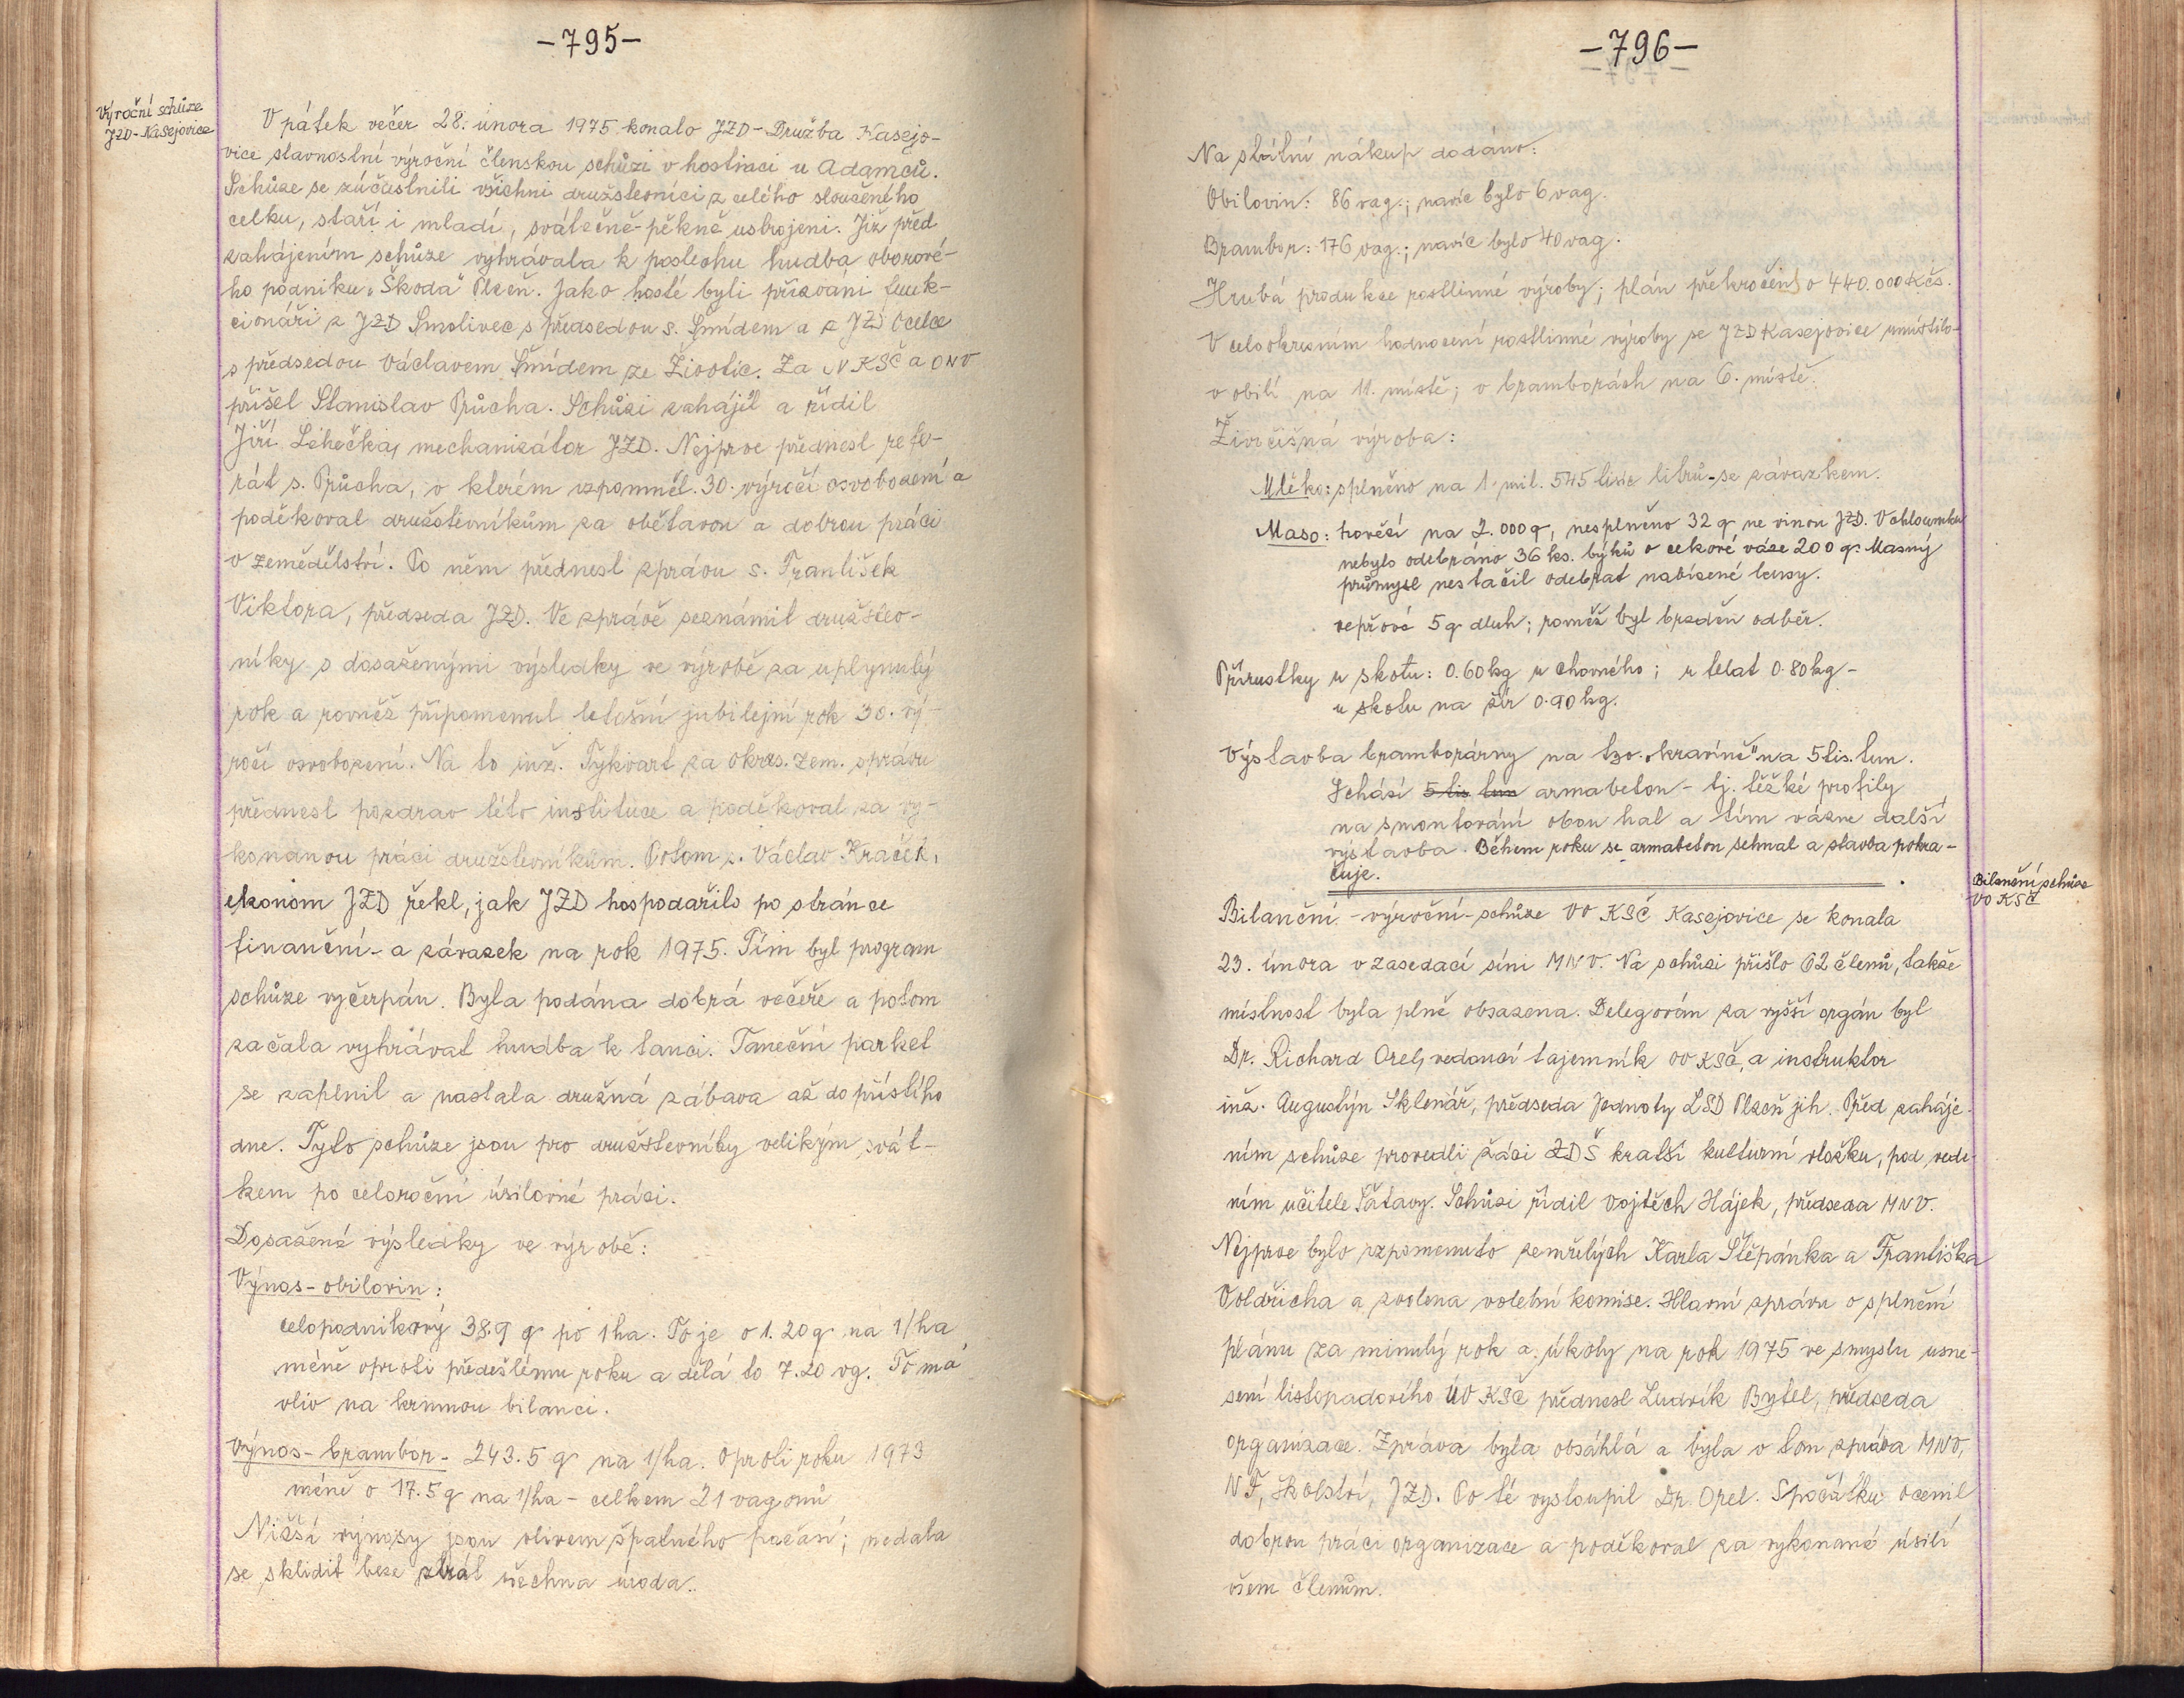 -795-
Výroční schůze
JZD-Kasejovice
V pátek večer 28. února 1975 konalo JZD-Družba Kasejo-
vice slavnostní výroční členskou schůzi v hostinci u Adamců.
Schůze se zúčastnili všichni družstevníci z celého sloučeného
celku, staří i mladí, svátečně-pěkně ustrojeni. Již před
zahájením schůze vyhrávala k poslechu hudba oborové-
ho podniku „Škoda" Plzeň. Jako hosté byli přizváni funk-
cionáři z JZD Smolivec s předsedou s. Šmídem a z JZD Oselce
s předsedou Václavem Šmídem ze Životic. Za V KSČ a ONV
přišel Stanislav Průcha. Schůzi zahájil a řídil
Jiří Lehečka, mechanizátor JZD. Nejprve přednesl refe-
rát s. Průcha, v kterém vzpomněl 30. výročí osvobození a
poděkoval družstevníkům za obětavou a dobrou práci
v zemědělství. Po něm přednesl zprávu s. František
Viktora, předseda JZD. Ve zprávě seznámil družstev-
níky s dosaženými výsledky ve výrobě za uplynulý
rok a rovněž připomenul letošní jubilejní rok 30. vý-
ročí osvobození. Na to inž. Tykvart za okres. zem. správu
přednesl pozdrav této instituce a poděkoval za vy-
konanou práci družstevníkům. Potom s. Václav Kraček,
ekonom JZD řekl, jak JZD hospodařilo po stránce
finanční- a závazek na rok 1975. Tím byl program
schůze vyčerpán. Byla podána dobrá večeře a potom
začala vyhrávat hudba k tanci. Taneční parket
se zaplnil a nastala družná zábava až do příštího
dne. Tyto schůze jsou pro družstevníky velikým svát-
kem po celoroční úsilovné práci.
Dosažené výsledky ve výrobě:
Výnos-obilovin:
celopodnikový 38.9 q po 1ha. To je o 1.20q na 1/ha
méně oproti předešlému roku a dělá to 7.20 vg. To má
vliv na krmnou bilanci.
Výnos-brambor- 243.5 q na 1/ha. Oproti roku 1973
méně o 17.5q na 1/ha - celkem 21 vagonů
Nižší výnosy jsou vlivem špatného počasí; nedala
se sklidit beze ztrát všechna úroda.
-796-
Na státní nákup dodáno:
Obilovin: 86 vag.; navíc bylo 6 vag.
Brambor: 176 vag.; navíc bylo 40 vag.
Hrubá produkce rostlinné výroby; plán překročen o 440.000 Kčs.
V celookresním hodnocení rostlinné výroby se JZD Kasejovice umístilo-
v obilí na 11. místě; v bramborách na 6. místě.
Živočišná výroba:
Mléko: splněno na 1.mil. 545 tisíc litrů-se závazkem.
Maso: hovězí na 2.000q, nesplněno 32 q ne vinou JZD. V chloumku
nebylo odebráno 36 ks. býků o celkové váze 200 q. Masný
průmysl nestačil odebrat nabízené kusy.
vepřové 5q dluh; rovněž byl brzděn odběr.
Přírustky u skotu: 0.60kg u chovného; u telat 0.80kg-
u skotu na žír 0.90kg.
Výstavba bramborárny na tzv. „kravíně" na 5 tis. tun.
Schází 5 tis tun armabeton - tj. těžké profily
na smontování obou hal a tím vázne další
výstavba. Během roku se armabeton sehnal a stavba pokra-
čuje.
Bilanční schůze
VO KSČ
Bilanční-výroční-schůze VO KSČ Kasejovice se konala
23. února v zasedací síni MNV. Na schůzi přišlo 62 členů, takže
místnost byla plně obsazena. Delegován za vyšší orgán byl
Dr. Richard Orel, vedoucí tajemník OV KSČ, a instruktor
inž. Augustýn Sklenář, předseda Jednoty LSD Plzeň jih. Před zaháje-
ním schůze provedli žáci ZDŠ kratší kulturní vložku, pod vede-
ním učitele Šatavy. Schůzi řídil Vojtěch Hájek, předseda MNV.
Nejprve bylo vzpomenuto zemřelých Karla Štěpánka a Františka
Voldřicha a zvolena volební komise. Hlavní zprávu o splnění
plánu za minulý rok a úkoly na rok 1975 ve smyslu usne-
sení listopadového ÚV KSČ přednesl Ludvík Bytel, předseda
organizace. Zpráva byla obsáhlá a byla v tom zpráva MNV,
NF, školství, JZD. Po té vystoupil Dr. Orel. Spočátku ocenil
dobrou práci organizace a poděkoval za vykonané úsilí
všem členům.